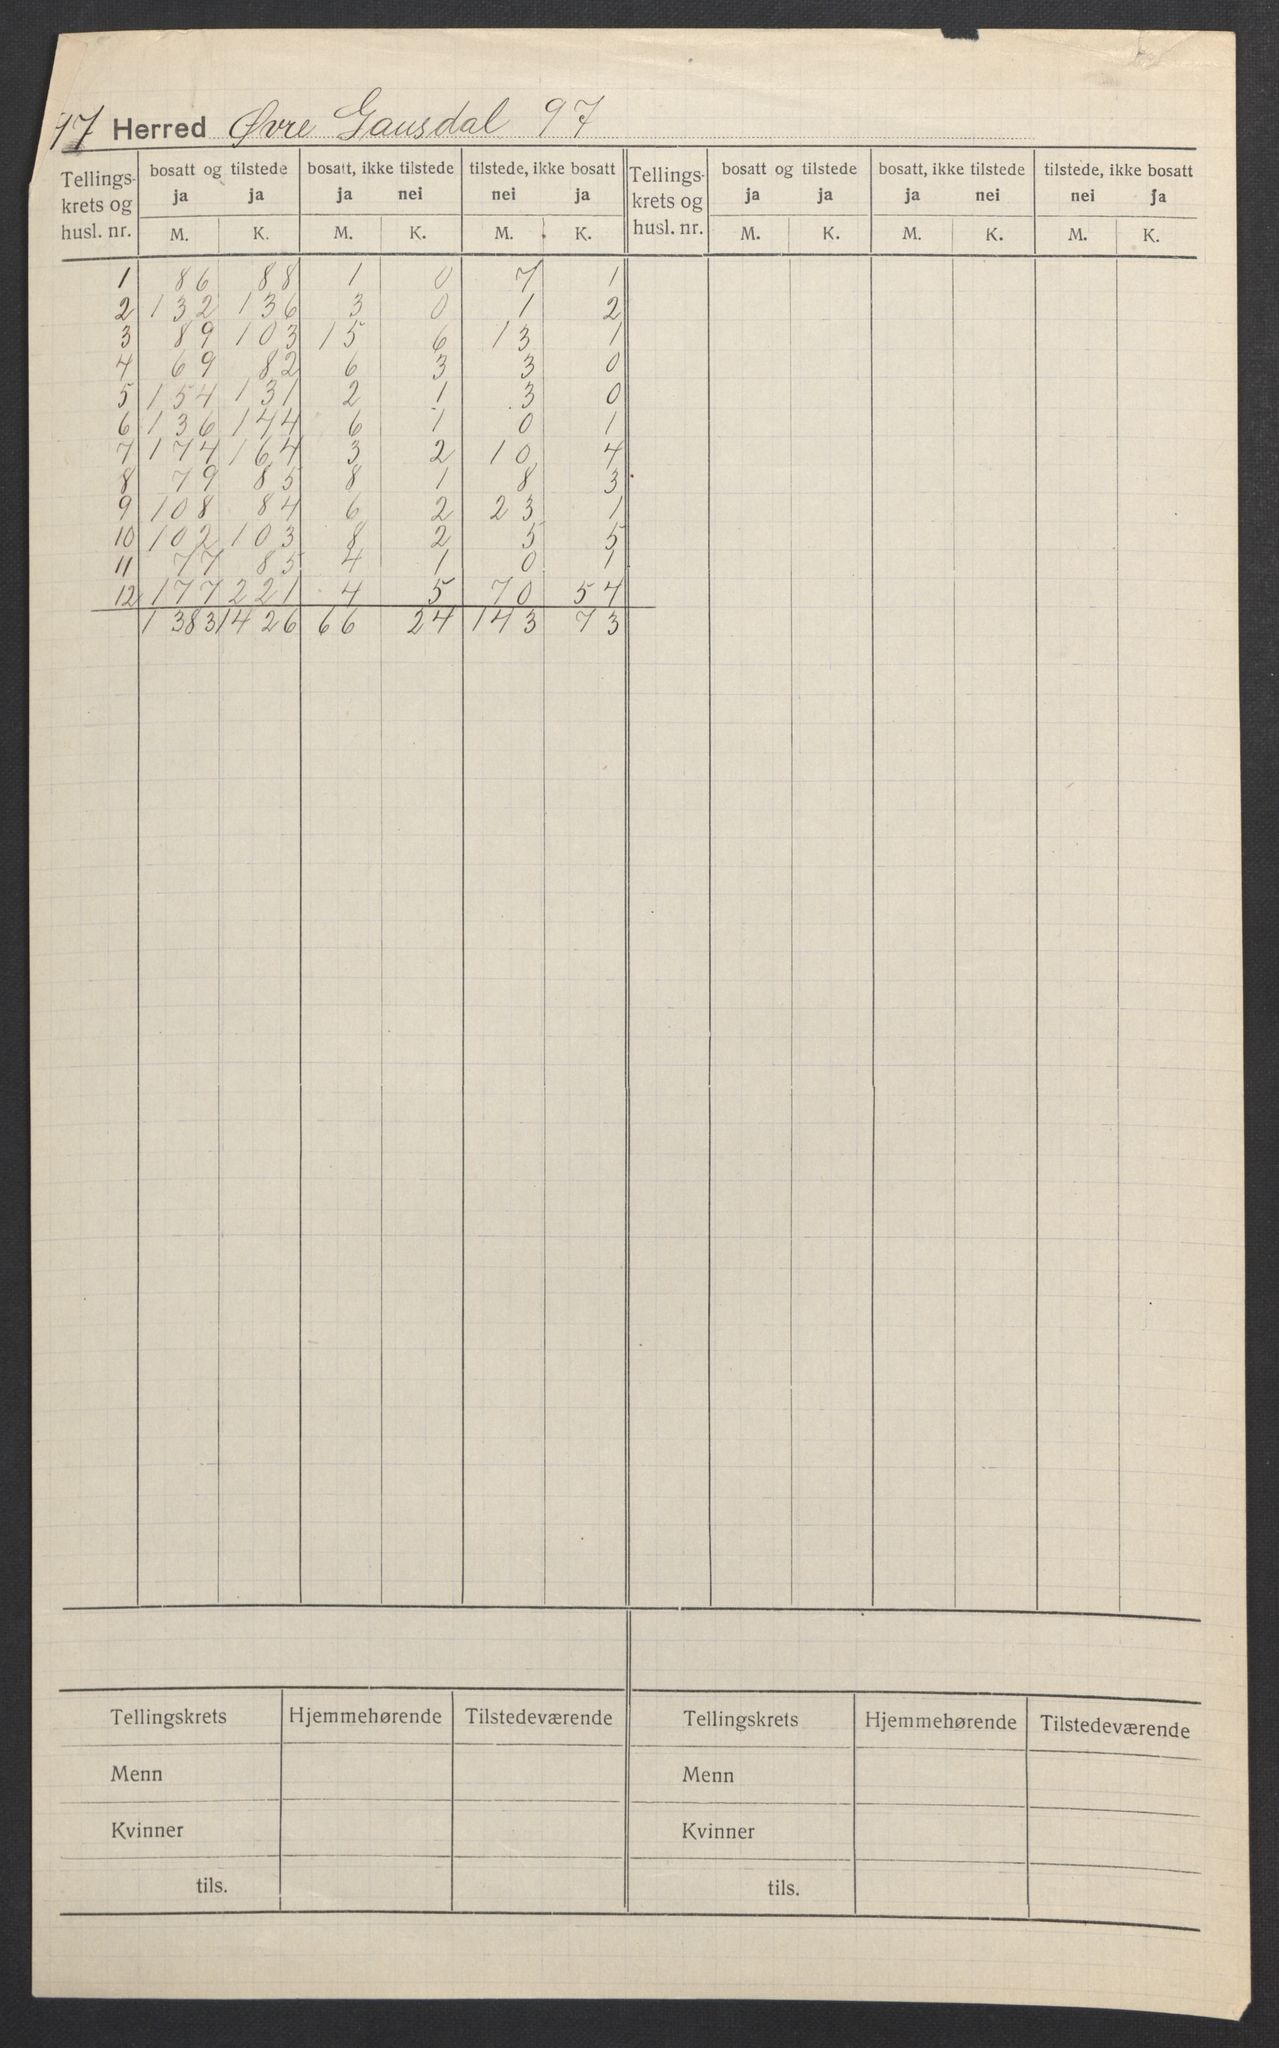 97 Herred Øvre Gausdal 97
Tellings- bosatt og tilstede bosatt, ikke tilstede tilstede, ikke bosatt Tellings- bosatt og tilstede bosatt, ikke tilstede tilstede, ikke bosatt
krets og ja ja ja nei nei ja krets og ja ja ja nei nei ja
husl. nr. M. K. M. K. M. K. husl. nr. M. K. M. K. M. K.
1 86 88 1 0 7 1
2 132 136 3 0 1 2
3 89 103 15 6 13 1
4 69 82 6 3 3 0
5 154 131 2 1 3 0
6 136 144 6 1 0 1
7 174 164 3 2 10 4
8 79 85 8 1 8 3
9 108 84 6 2 23 1
10 102 103 8 2 5 5
11 77 85 4 1 0 1
12 177 221 4 5 70 54
1383 1426 66 24 143 73
Tellingskrets Hjemmehørende Tilstedeværende Tellingskrets Hjemmehørende Tilstedeværende
Menn Menn
Kvinner Kvinner
tils. tils.